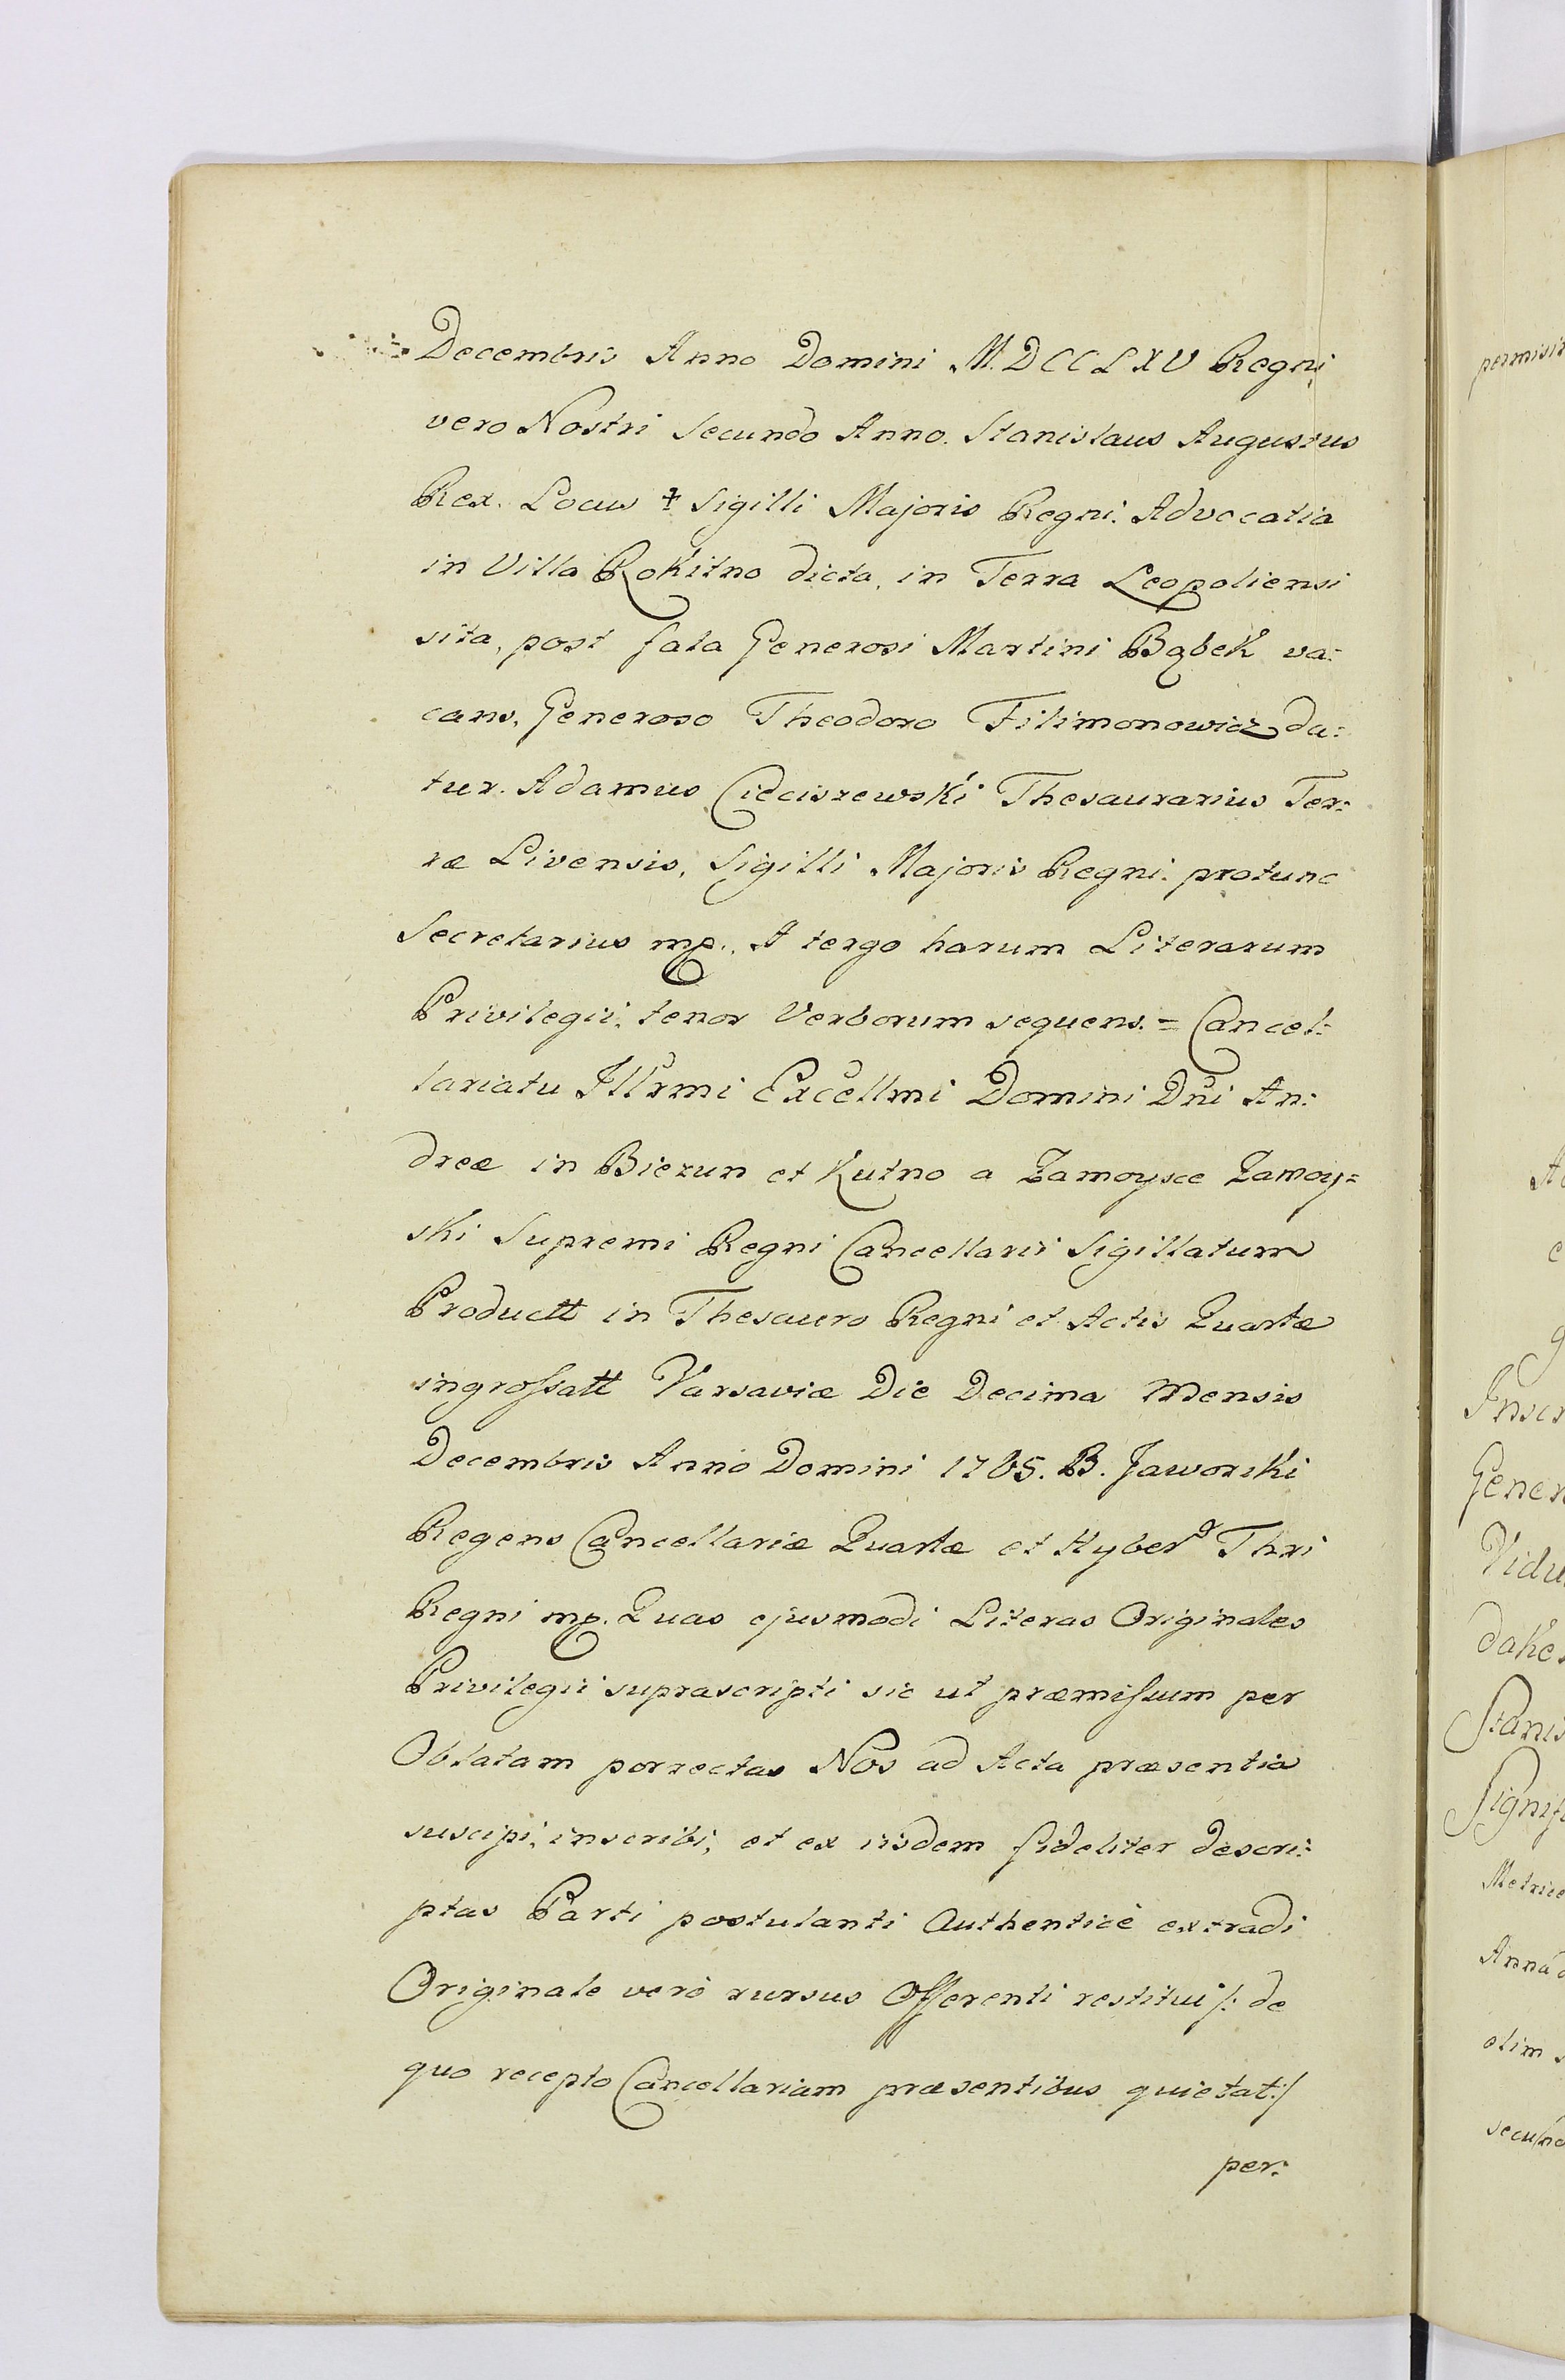 Decembris Anno Domini M.DCCLXV Regni
vero Nostri Secundo Anno. Stanislaus Augustus
Rex. Locus ‡ Sigilli Majoris Regni. Advocatia
in Villa Rokitno dicta, in Terra Leopoliensi
sita, post fata Generosi Martini Bąbek va:
cans, Generoso Theodoro Filimonowicz da:
tur. Adamus Cieciszewski Thesaurarius Ter:
ræ Livensis, Sigilli Majoris Regni. protunc
Secretarius mp. A tergo harum Literarum
Privilegii, tenor Verborum sequens. = Cancel:
lariatu Illrmi Excellmi Domini Dni An:
dreæ in Biezun et Kutno a Zamoysce Zamoy=
ski Supremi Regni Cancellarii Sigillatum
Productt in Thesauro Regni et Actis Quartæ
ingrossatt Varsaviæ Die Decima Mensis
Decembris Anno Domini 1765. B. Jaworski
Regens Cancellariæ Quartæ et Hyber Thri
Regni mp. Quas ejusmodi Literas Originales
Privilegii suprascripti sic ut præmissum per
Oblatam porrectas Nos ad Acta præsentia
suscipi, inscribi, et ex iisdem fideliter descri:
ptas Parti postulanti Authenticè extradi
Originale verò rursus Offerenti restitui /: de
quo recepto Cancellariam præsentibus quietat :/
per:
permisim
Inscr
Gener
Vidu
dake
Stanis
Signifi
Metrice
Anna
olim
secund